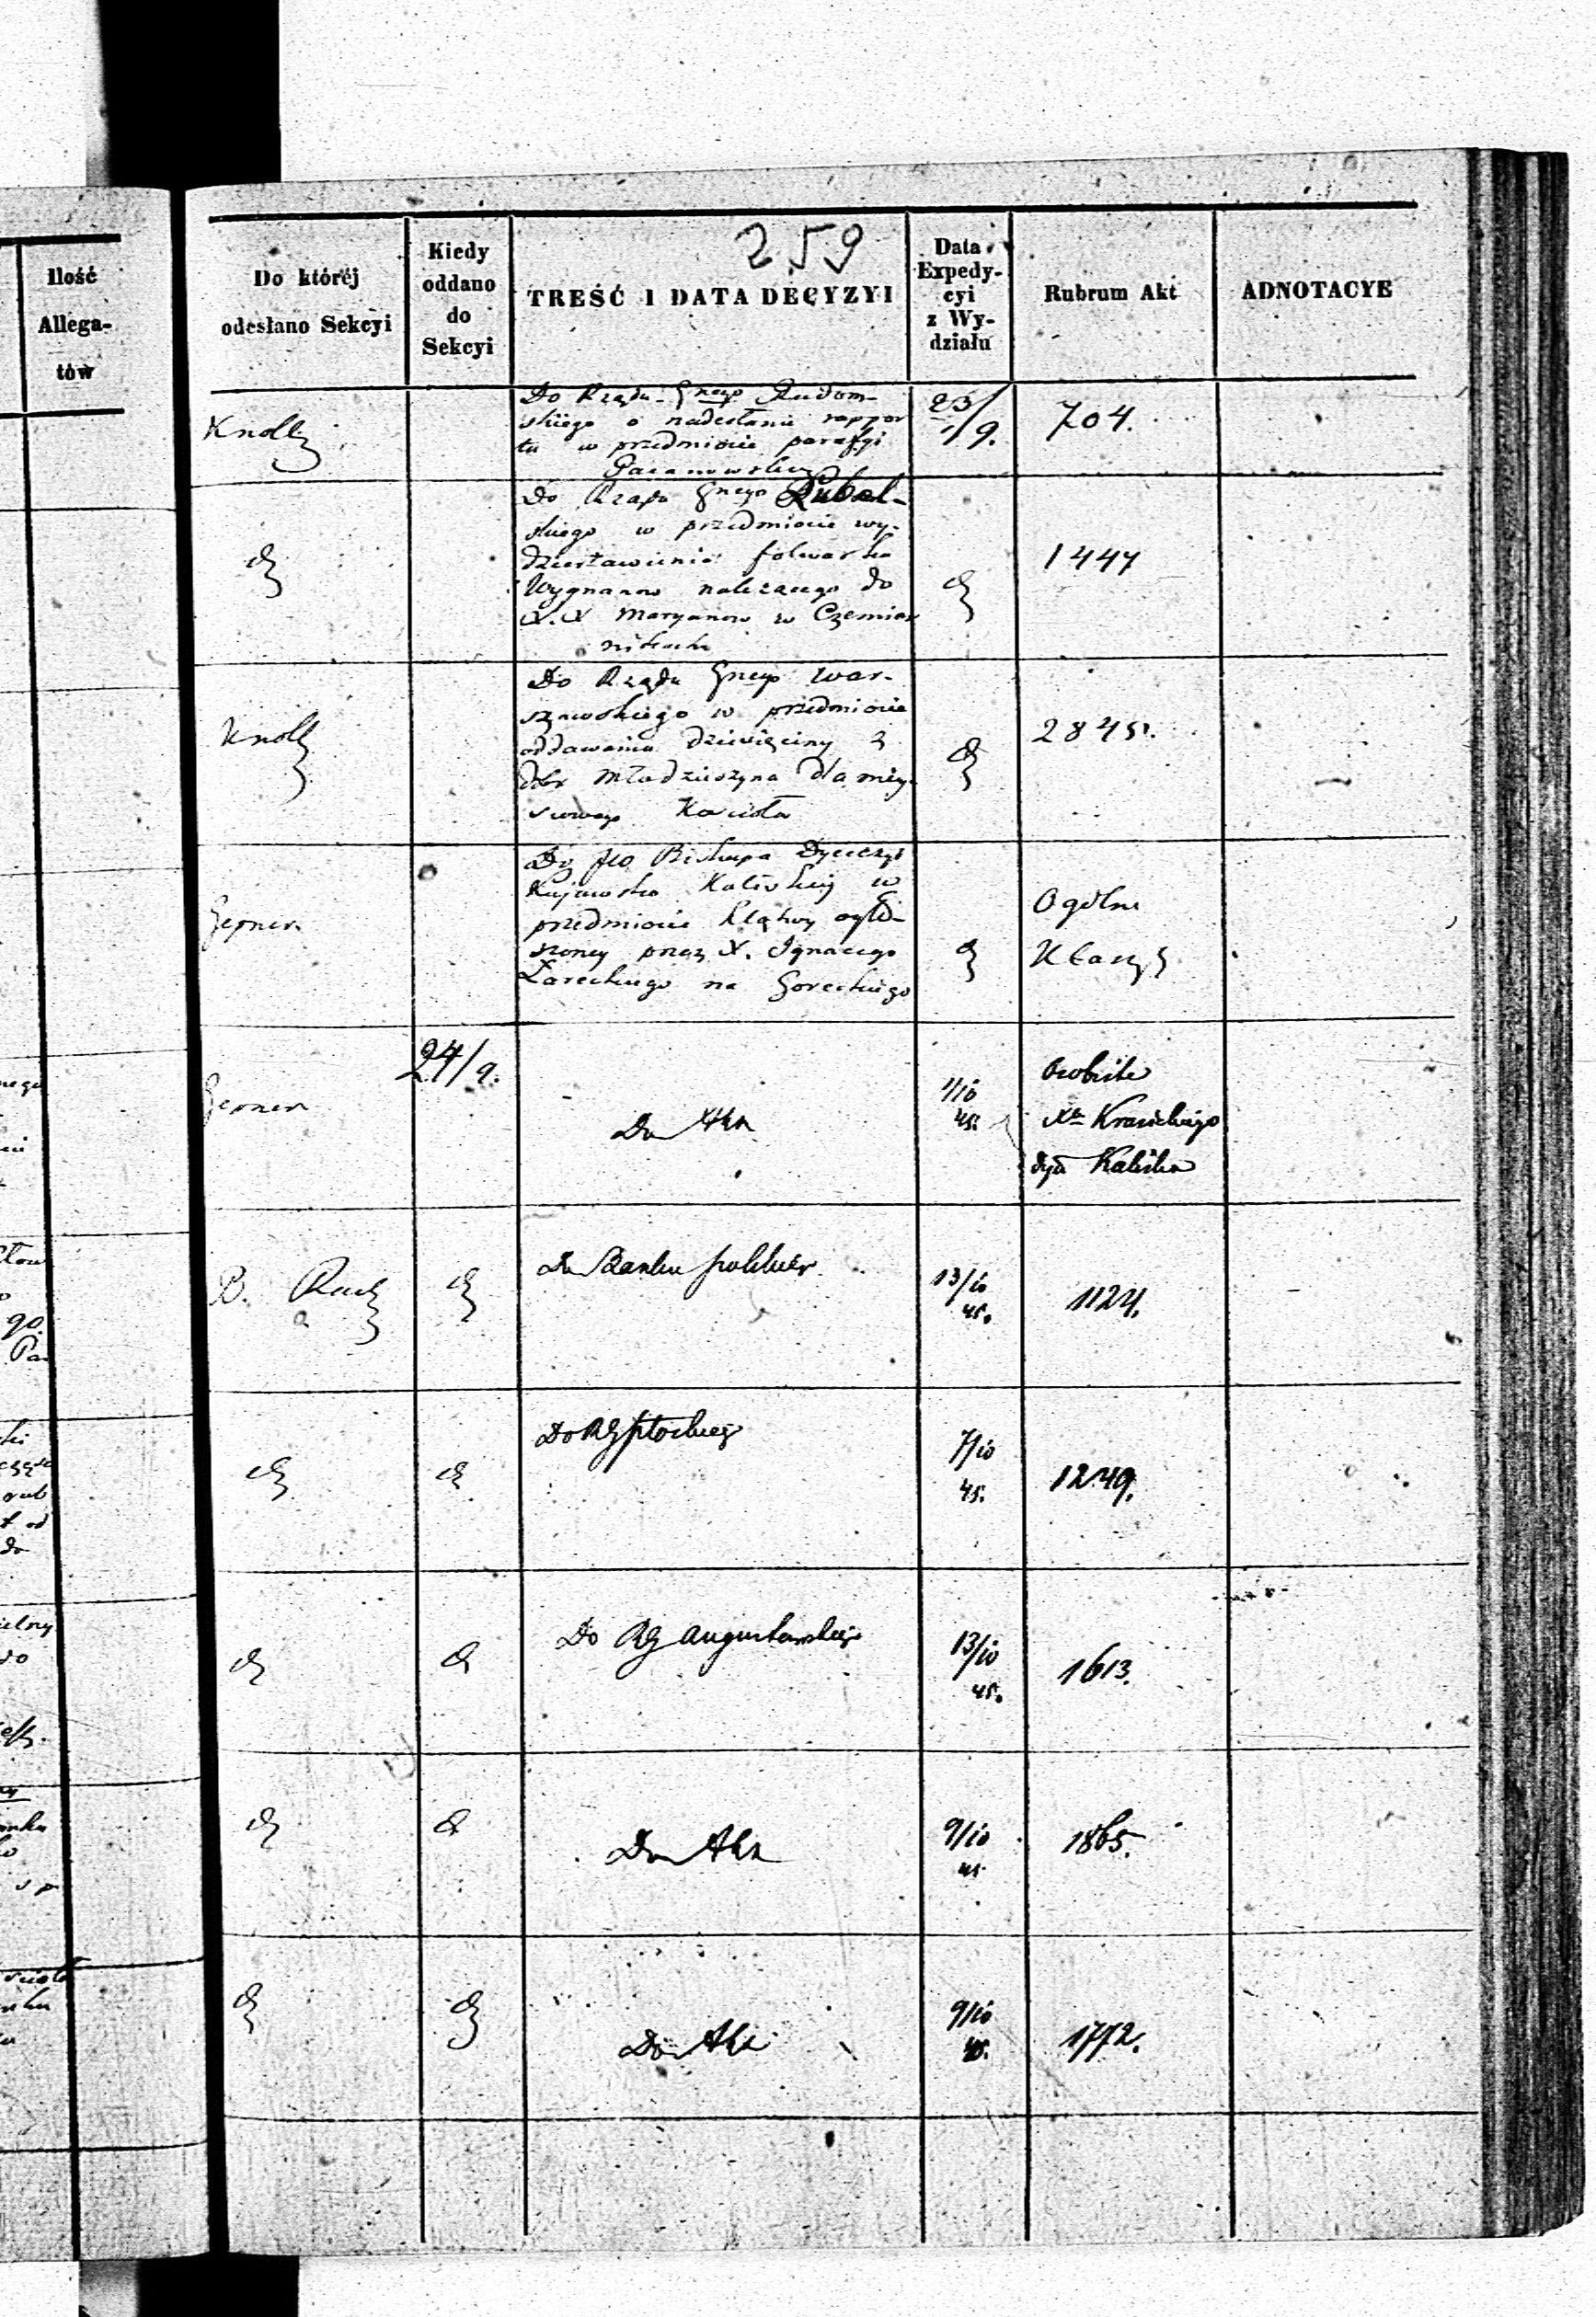 Ilość
Allega-
tów
259
Do któréj
odesłano Sekcyi
Kiedy
oddano
do
Sekcyi
TREŚĆ I DATA DECYZYI
Data
Expedy-
cyi
z Wy-
działu
Rubrum Akt
ADNOTACYE
Knoll
Do Rządu Gnego Radom-
skiego o nadesłanie rappor
tu w przedmiocie parafyi
23/9.
704.
Do Rządu Gnego Lubel-
skiego w przedmiocie wy-
dzierławienia folwarku
Wygnanow należacego do
X.X Maryanow w Czemier
nikach
1447
Knoll
Do Rządu Gnego War-
szawskiego w przedmiocie
oddawania dziesięciny z
dobr Młodzieszyna dla miey
scowego Kościoła
2845.
Gepner
Do JW Biskupa Dyecezyi
Kujawsko Kaliskiej w
przedmiocie klątwy ogło-
szoney przez X. Ignacego
Zareckiego na Goreckiego
Ogólne
Gepner
24/9.
Do Akt
1/10
45.
Osobiste
Xa Krasickiego
dya Kaliska
B.
Do Banku polskiego
13/10
45.
1124.
Do RG płockiego
7/10
45.
1249.
Do RG Augustowskiego
13/10
45.
1613.
Do Akt
9/10
45
1865.
Do Akt
9/10
45.
1772.